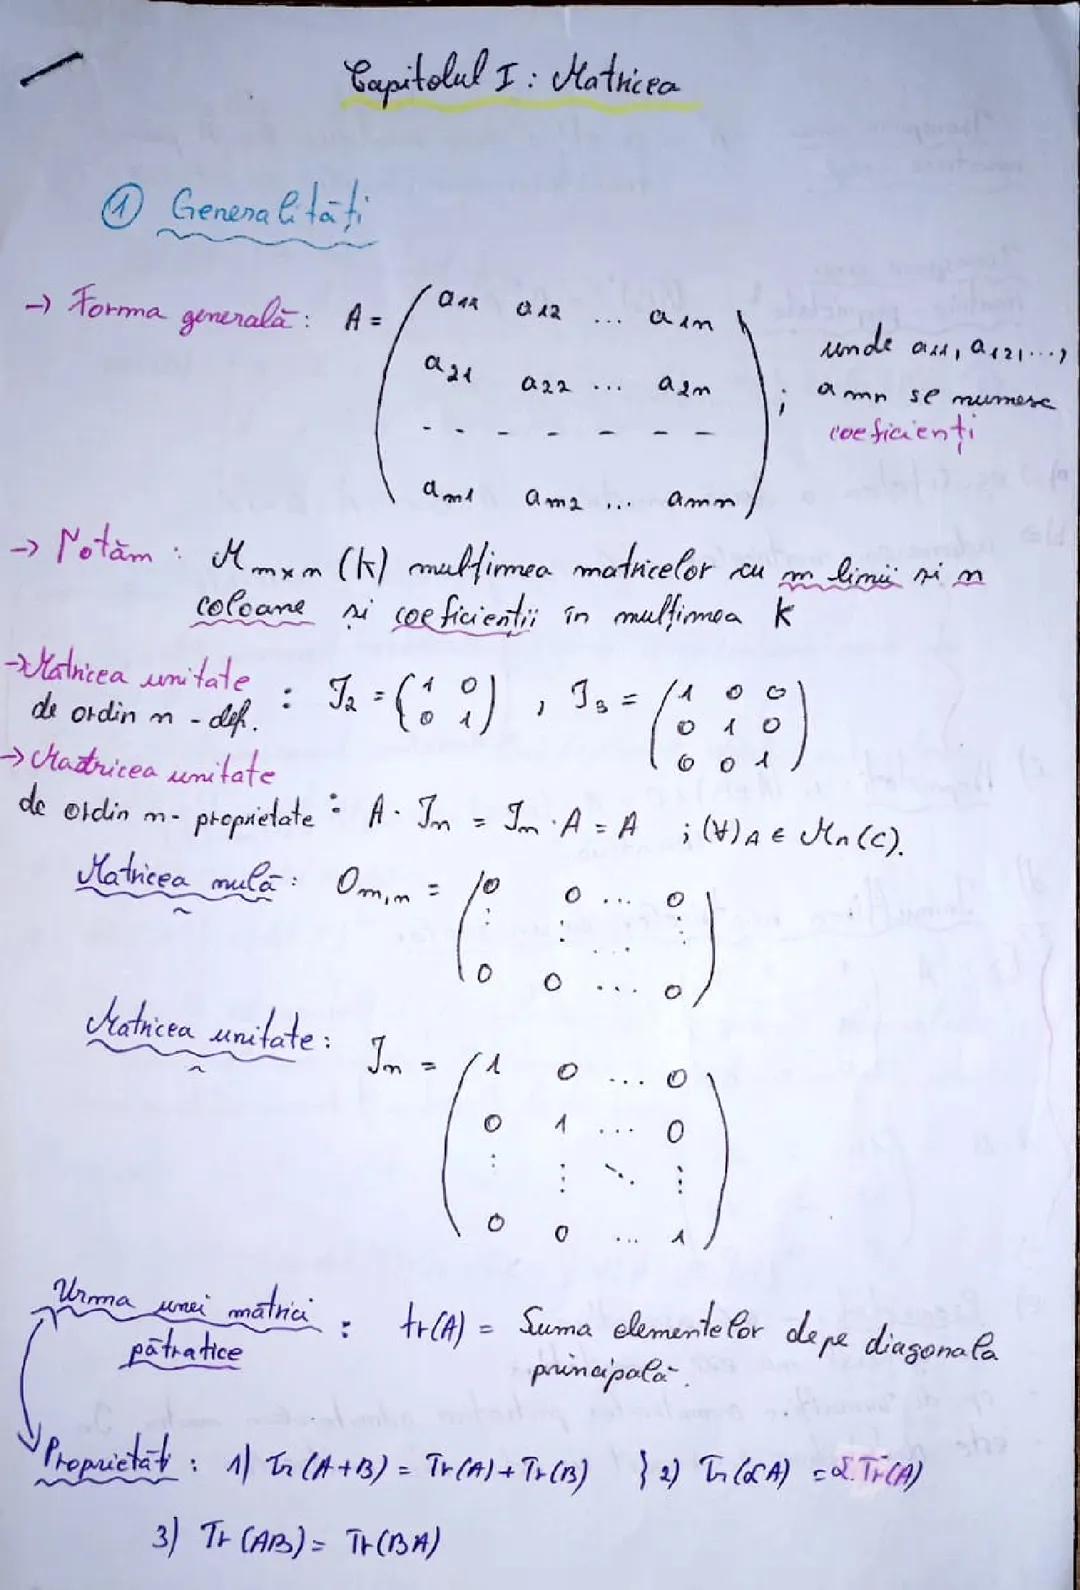 Capitolul I : Matricea
① Generalități
→ Forma generală : A = ( a11 a12 ... a1n
a21 a22 ... a2n
- - - - - - -
am1 am2 ... amn ) ; unde a11, a12, ...,
amn se numesc
coeficienți
→ Notăm : Mm×n (K) mulțimea matricelor cu m linii și n
coloane și coeficienții în mulțimea K
→ Matricea unitate
de ordin n - def. : I2 = ( 1 0
0 1 ) , I3 = ( 1 0 0
0 1 0
0 0 1 )
→ Matricea unitate
de ordin n - proprietate : A · In = In · A = A ; (∀) A ∈ Mn (C).
Matricea nulă : Om,n = ( 0 0 ... 0
⋮ ⋮ ⋱ ⋮
0 0 ... 0 )
Matricea unitate : In = ( 1 0 ... 0
0 1 ... 0
⋮ ⋮ ⋱ ⋮
0 0 ... 1 )
Urma unei matrici
pătratice : tr(A) = Suma elementelor de pe diagonala
principală.
Proprietăți : 1) Tr (A+B) = Tr(A) + Tr(B) } 2) Tr (αA) = α.Tr(A)
3) Tr (AB) = Tr(BA)